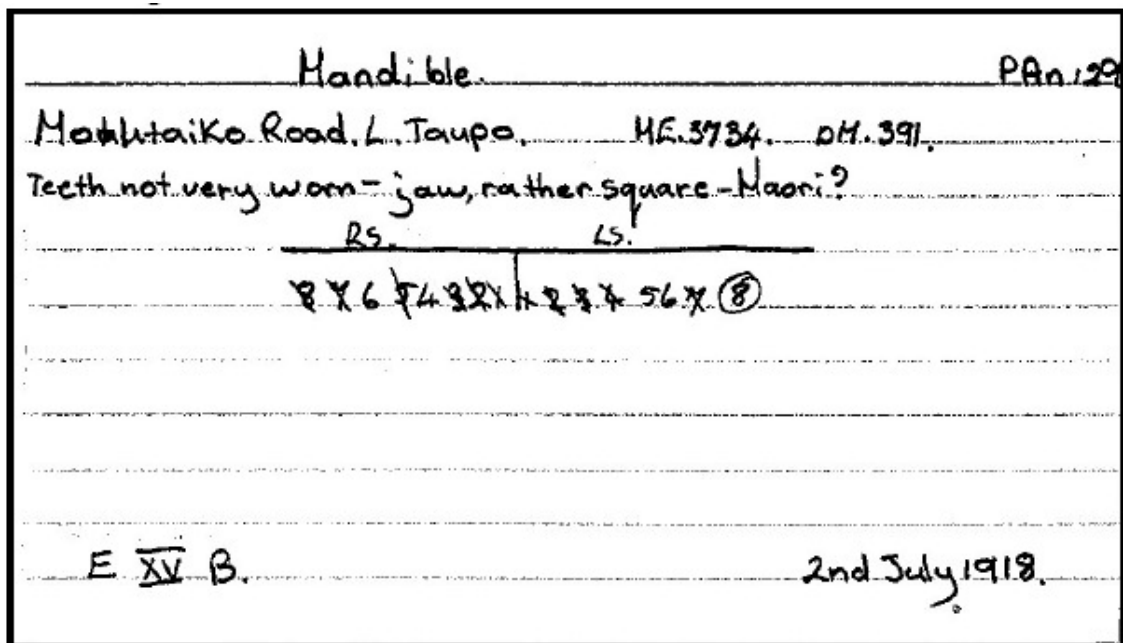 Mandible. PAn.29
Road. L. Taupo. ME.3734. DM.391.
Teeth not very worn - jaw, rather square - Maori?
RS. LS.
8 7 6 5 4 3 2 1 1 2 3 4 5 6 7 8
E XV B. 2nd July 1918.